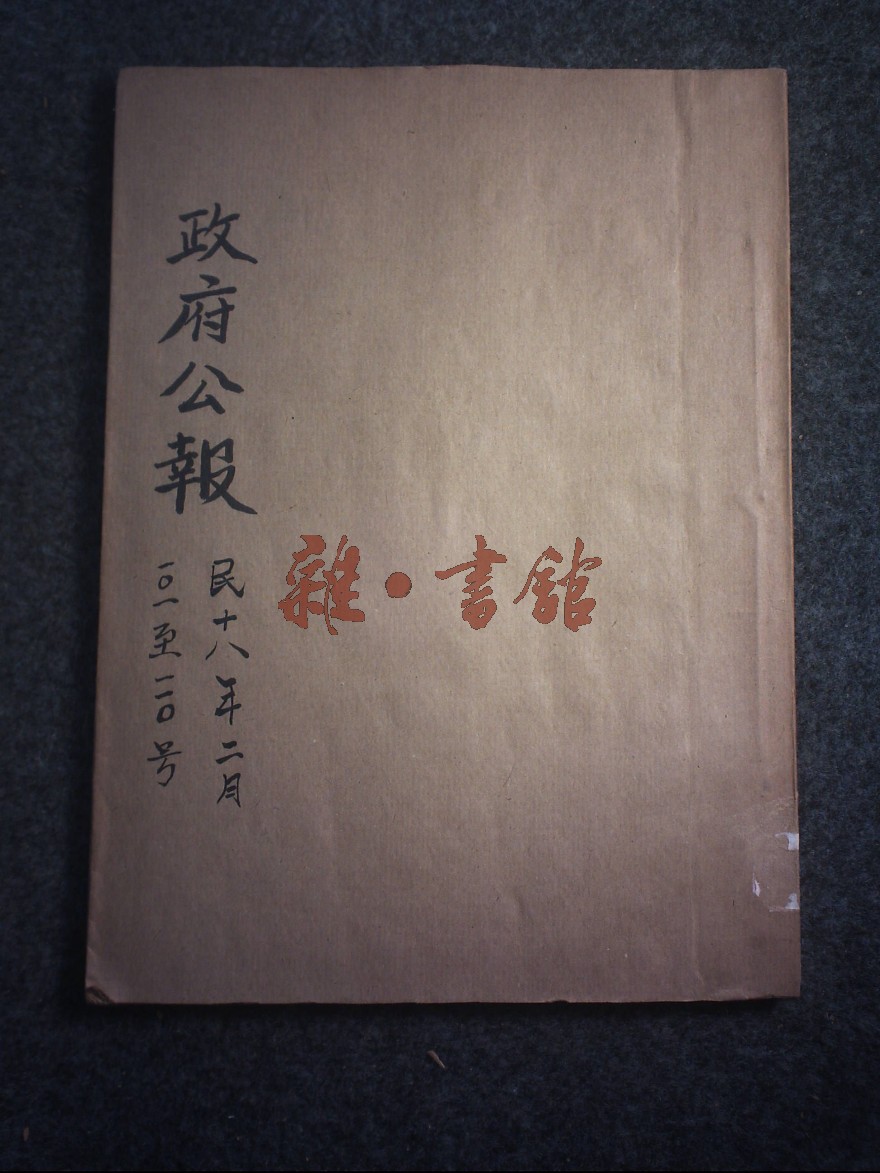 政府公報
民十八年二月
一〇一至一二〇号
雜·書館